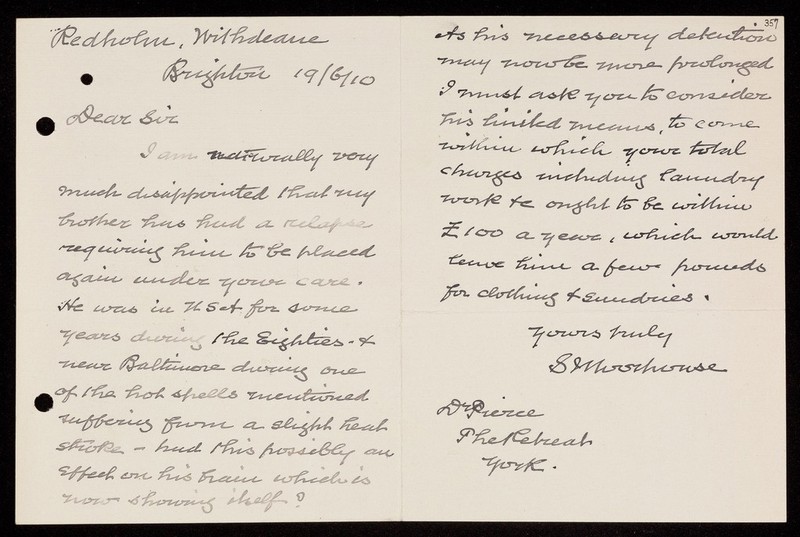 Redholm, Withdeane
Brighton 19/6/10
Dear Sir
I am naturally very
much disappointed that my
brother has had a relapse
requiring him to be placed
again under your care.
He was in USA for some
years during the Eighties - &
near Baltimore during one
of the hot spells mentioned
suffering from a slight heat
stroke - had this possibly an
effect on his brain which is
now showing itself?
357
As his necessary detention
may now be more prolonged
I must ask you to consider
his limited means, to come
within which your total
charges including laundry
work &c ought to be within
£100 a year, which would
leave him a few pounds
for clothing & sundries.
Yours truly
S Moorhouse
Dr Pierce
The Retreat
York.